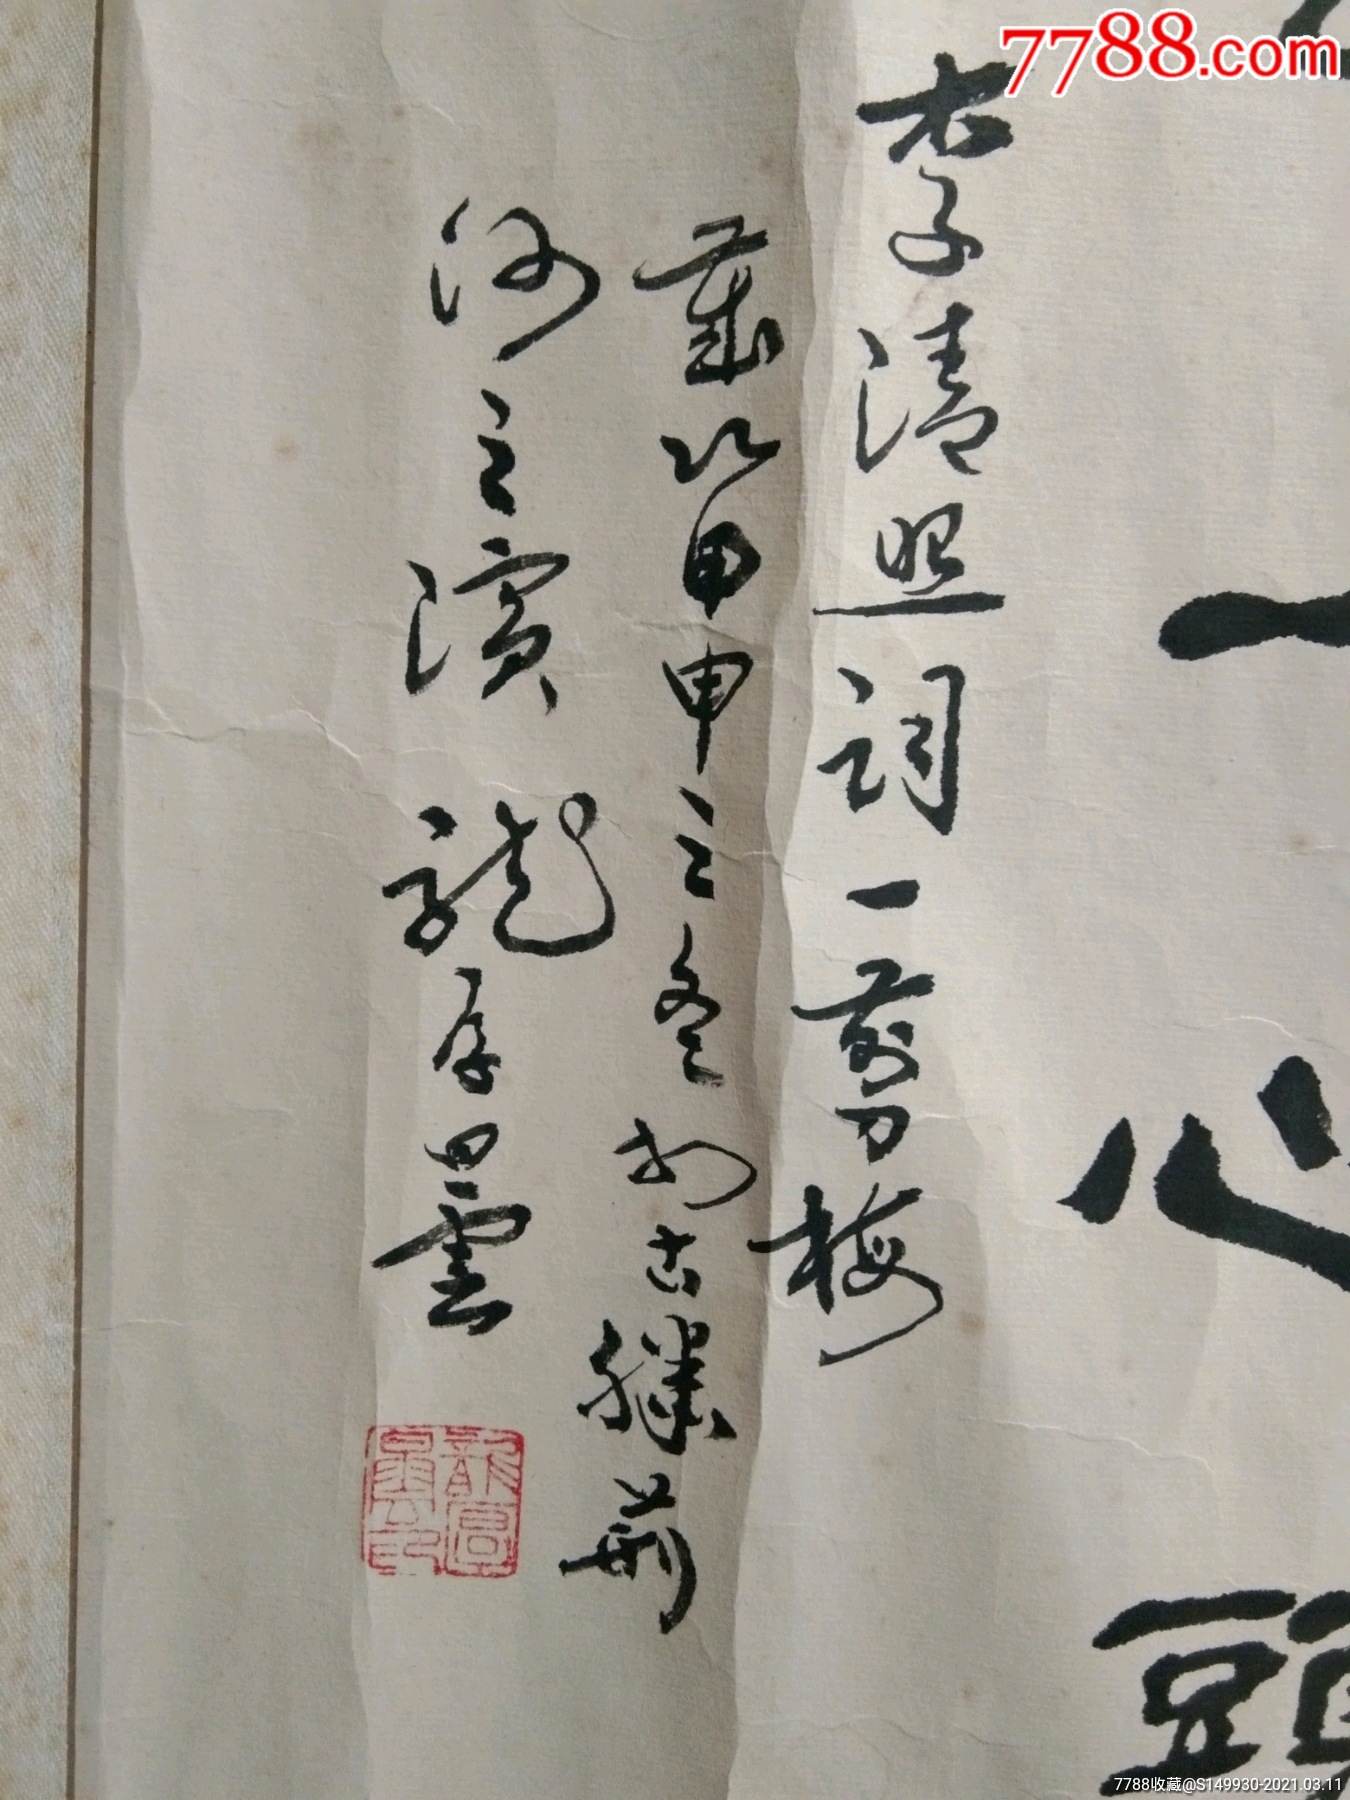 7788.com
一心頭
李清照词一剪梅
歲次甲申之冬於古滕荊
河之濱龍厚云
7788收藏@S149930-2021.03.11